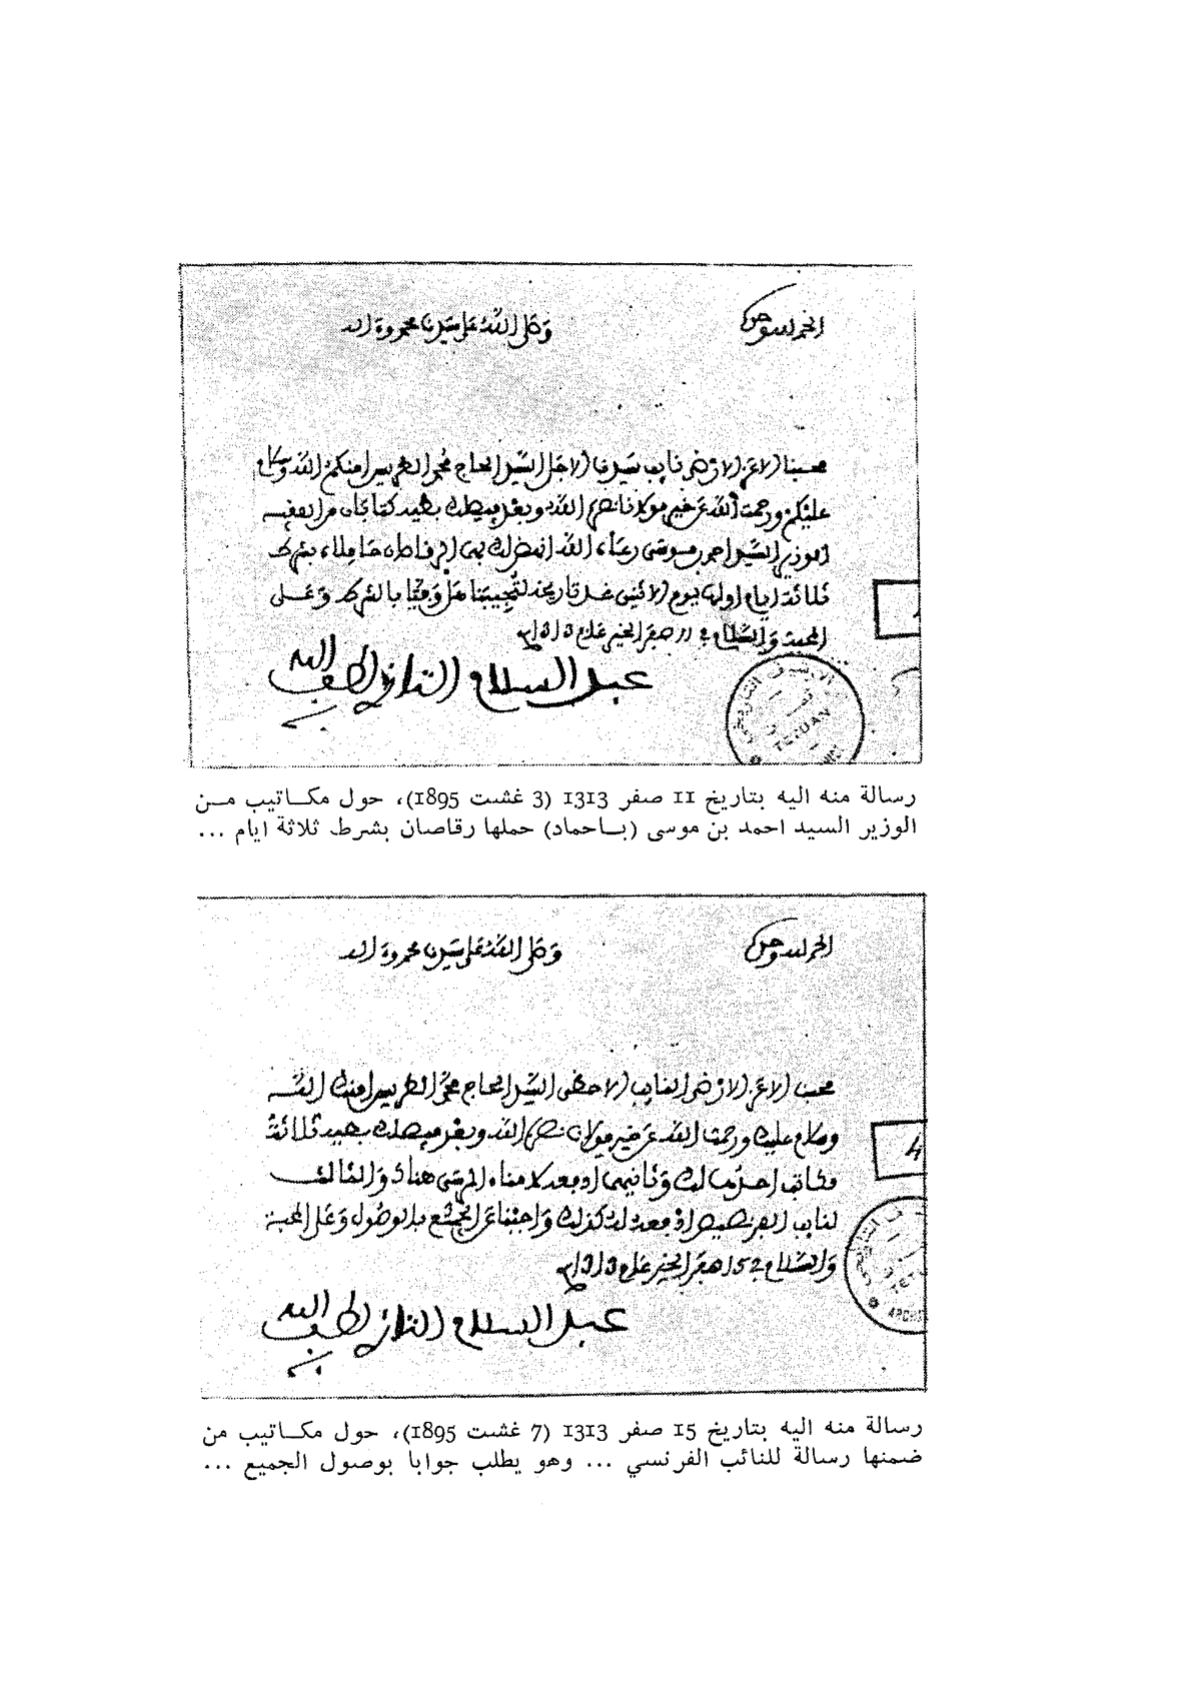 الحمد لله وحده
وصلى الله على سيدنا محمد وءاله
محبنا الاعز الارضى نايب سيدنا الاجل السيد الحاج محمد الطريس امنكم الله وسلام
عليكم ورحمت الله عن خير مولانا نصره الله وبعد فيصلك بطيه كتابان من الفقيه
الوزير السيد احمد بن موسى رعاه الله الرقاصان حاملاه بشرط
ثلاثة ايام اولها يوم الاثنين غد تاريخه لتجيبنا هل وفيا بالشرط وعلى
المحبة والسلام في 11 صفر الخير عام 1313
عبد السلام التازي لطف الله به
TETUAN
رسالة منه اليه بتاريخ 11 صفر 1313 (3 غشت 1895)، حول مكــاتيب مــن
الوزير السيد احمد بن موسى (بــاحماد) حملها رقاصان بشرط ثلاثة ايام ...
الحمد لله وحده
وصلى الله على سيدنا محمد وءاله
محبنا الاعز الارضى النايب الاحظى السيد الحاج محمد الطريس امنك الله
وسلام عليك ورحمت الله عن خير مولانا نصره الله وبعد فيصلك بطيه ثلاثة
احدها لك وثانيها لامناء المرسى هناك والثالث
لنايب الفرنصيص كذلك واجبنا عن الجميع بالوصول وعلى المحبة
والسلام في 15 صفر الخير عام 1313
عبد السلام التازي لطف الله به
رسالة منه اليه بتاريخ 15 صفر 1313 (7 غشت 1895)، حول مكــاتيب من
ضمنها رسالة للنائب الفرنسي ... وهو يطلب جوابا بوصول الجميع ...